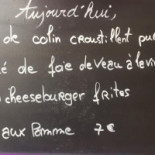 Aujourd'hui,
de colin croustillant pur
é de foie de veau à le vin
cheeseburger frites
aux Pomme 7€